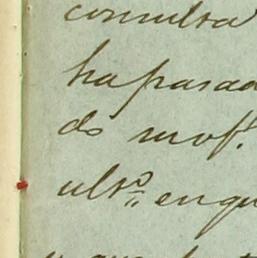 consulta
ha pasad
do mof.
ults. en qu